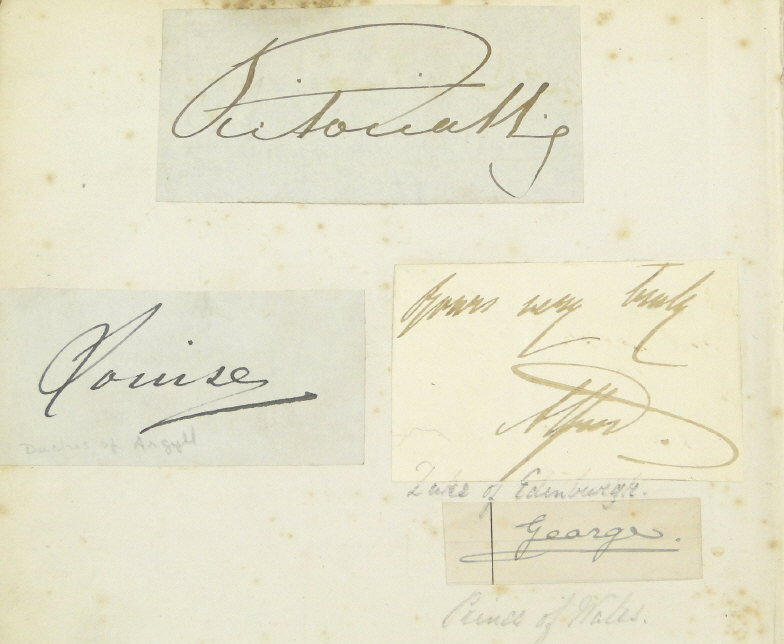 Victoria R I
Louise
Duchess of Argyll
Yours very truly
Alfred.
Duke of Edinburgh.
George.
Prince of Wales.